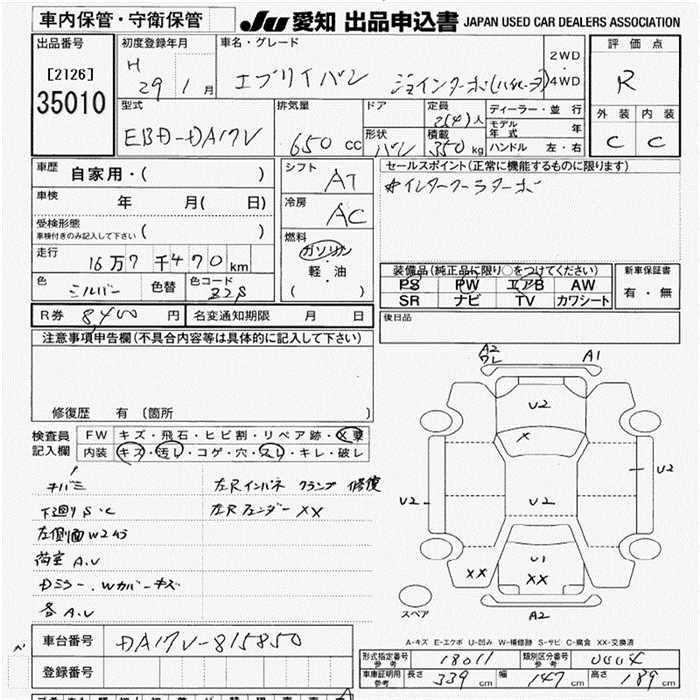 車内保管・守衛保管 JU 愛知 出品申込書 JAPAN USED CAR DEALERS ASSOCIATION
出品番号
[2126]
35010
初度登録年月
H 29年 1月
車名・グレード
エブリイバン ジョインターボ(ハイルーフ)
2WD
・
4WD
評価点
R
外装 内装
C C
型式
EBD-DA17V
排気量
650 cc
ドア
形状
バン
定員
2(4)人
積載
350 kg
ディーラー・並行
モデル年式 年
ハンドル 左・右
車歴
自家用・( )
車検
年 月( 日)
受検形態
車検付きのみ記入して下さい ( )
走行
16万7千470km
色
シルバー
色替
色コード
Z2S
シフト
AT
冷房
AC
燃料
ガソリン
・
軽油
( )
セールスポイント(正常に機能するものに限ります)
インタークーラターボ
装備品(純正品に限り○をつけてください)
PS PW エアB AW
SR ナビ TV カワシート
新車保証書
有・無
R券 8,400円
名変通知期限 月 日
後日品
注意事項申告欄(不具合内容等は具体的に記入して下さい)
修復歴 有 (箇所 )
検査員
記入欄
FW キズ・飛石・ヒビ割・リペア跡・X要
内装 キズ・汚レ・コゲ・穴・スレ・キレ・破レ
キバミ
下廻りS・C
左側面W2あり
荷室A.U
Dミラー.Wカバーキズ
各A.U
左Rインパネ クランプ 修復
左Rフェンダー XX
A2
ワレ
A1
U2
X
U2
U2
U2
U1
XX
XX
A2
スペア
A-キズ E-エクボ U-凹み W-補修跡 S-サビ C-腐食 XX-交換済
車台番号
DA17V-815850
登録番号
形式指定番号
参考
18011
類別区分番号
参考
0004
車庫証明用
参考
長さ 339 cm
幅 147 cm
高さ 189 cm